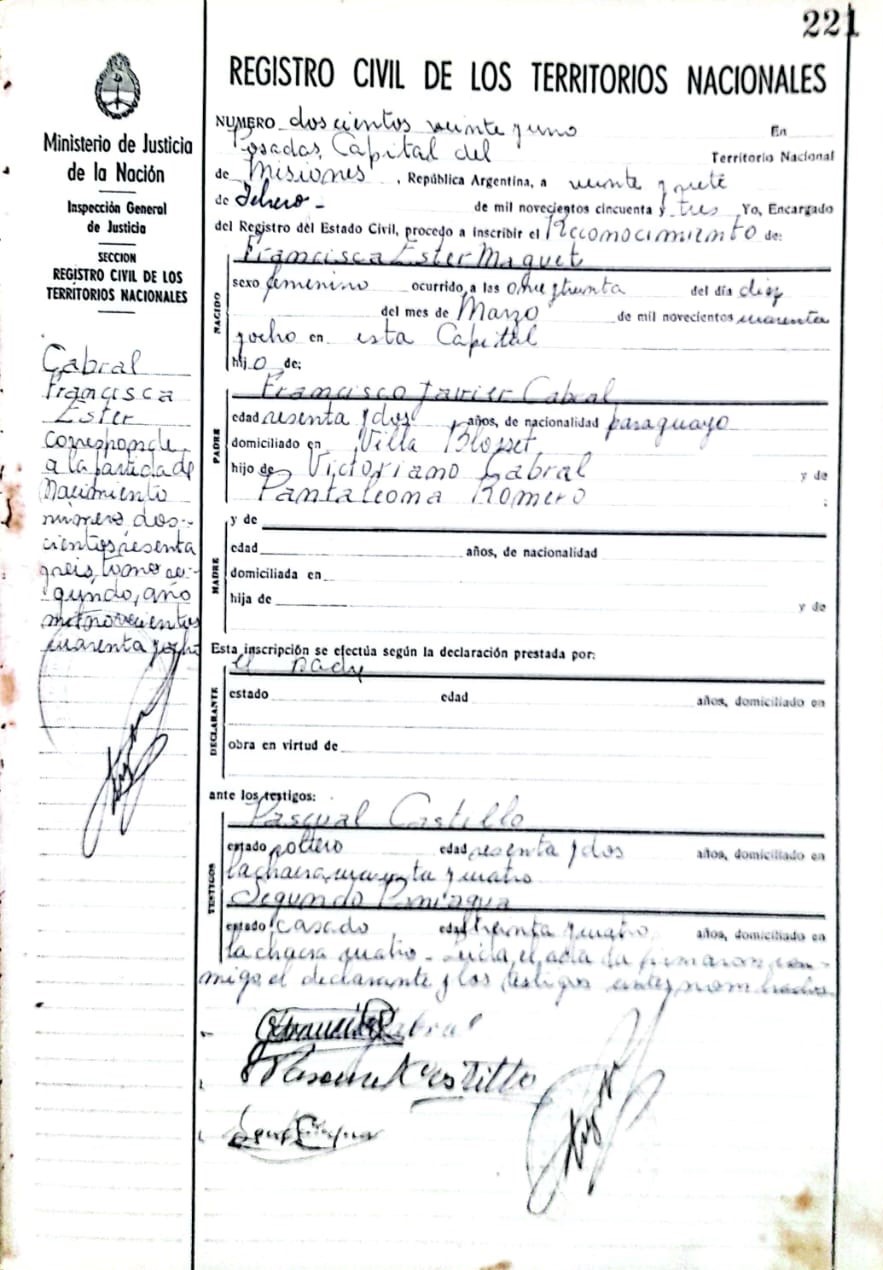 221
REGISTRO CIVIL DE LOS TERRITORIOS NACIONALES
Ministerio de Justicia
de la Nación
Inspección General
de Justicia
SECCION
REGISTRO CIVIL DE LOS
TERRITORIOS NACIONALES
Cabral
Francisca
Ester
corresponde
a la partida de
Nacimiento
número dos-
cientos sesenta
y seis, tomo se-
gundo, año
mil novecientos
cuarenta y ocho
NUMERO doscientos veinte y uno En
Posadas, Capital del Territorio Nacional
de Misiones, República Argentina, a veinte y siete
de Febrero - de mil novecientos cincuenta y tres Yo, Encargado
del Registro del Estado Civil, procedo a inscribir el Reconocimiento de:
NACIDO
Francisca Ester Maquet
sexo femenino ocurrido a las once y treinta del día diez
del mes de Marzo de mil novecientos cuarenta
y ocho en esta Capital
hijo de:
PADRE
Francisco Javier Cabral
edad sesenta y dos años, de nacionalidad paraguayo
domiciliado en Villa Blosset
hijo de Victoriano Cabral y de
Pantaleona Romero
MADRE
y de
edad años, de nacionalidad
domiciliada en
hija de y de
Esta inscripción se efectúa según la declaración prestada por:
DECLARANTE
el padre
estado edad años, domiciliado en
obra en virtud de
ante los testigos:
TESTIGOS
Pascual Castillo
estado soltero edad sesenta y dos años, domiciliado en
la chacra cuarenta y cuatro
Segundo Paniagua
estado casado edad treinta y cuatro años, domiciliado en
la chacra cuatro - Leída el acta la firmaron con-
migo el declarante y los testigos antes nombrados
Cabral
Castillo